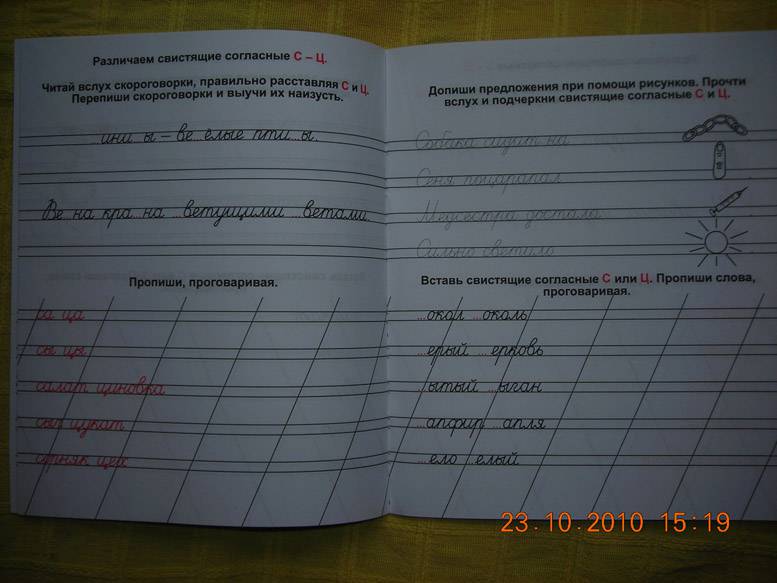 Различаем свистящие согласные С – Ц.
Читай вслух скороговорки, правильно расставляя С и Ц.
Перепиши скороговорки и выучи их наизусть.
...ини...ы – ве...ёлые пти...ы.
Ве...на кра...на ...ветущими ...ветами.
Пропиши, проговаривая.
са ца
сы цы
салат циновка
сыр цукат
сорняк цех
Допиши предложения при помощи рисунков. Прочти
вслух и подчеркни свистящие согласные С и Ц.
Собака сидит на
Сеня поцарапал
Медсестра достала
Сильно светило
Вставь свистящие согласные С или Ц. Пропиши слова,
проговаривая.
...окол ...околь
...ерый ...ерковь
...ытый ...ыган
...апфир ...апля
...ело ...елый
23.10.2010 15:19